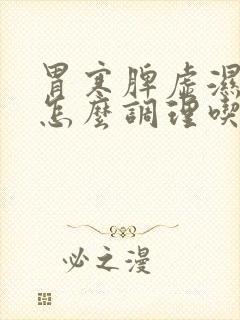 胃寒脾虛濕
怎麼調理喫
必之漫